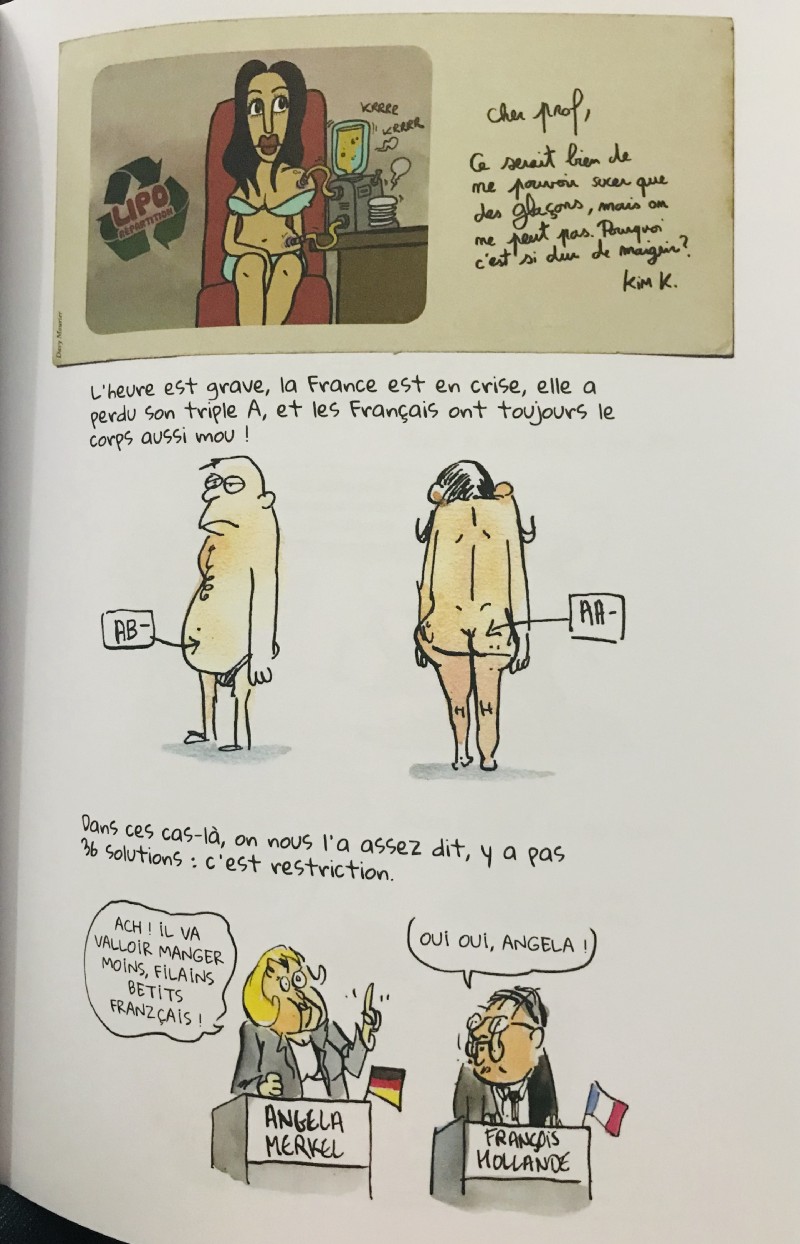 KRRRR
KRRRR
LIPO
RÉPARTITION
Cher prof,
Ce serait bien de
ne pouvoir sucer que
des glaçons, mais on
ne peut pas. Pourquoi
c'est si dur de maigrir?
Kim K.
L'heure est grave, la France est en crise, elle a
perdu son triple A, et les Français ont toujours le
corps aussi mou !
AB-
AA-
Dans ces cas-là, on nous l'a assez dit, y a pas
36 solutions : c'est restriction.
ACH ! IL VA
VALLOIR MANGER
MOINS, FILAINS
BETITS
FRANZÇAIS !
OUI OUI, ANGELA !
ANGELA
MERKEL
FRANÇOIS
HOLLANDE